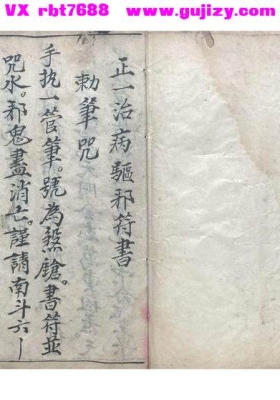 VX rbt7688 www.gujizy.com
正一治病驅邪符書
勅筆咒
手执一管筆。號為煞鎗。書符並
咒水。邪鬼盡消亡。謹請南斗六